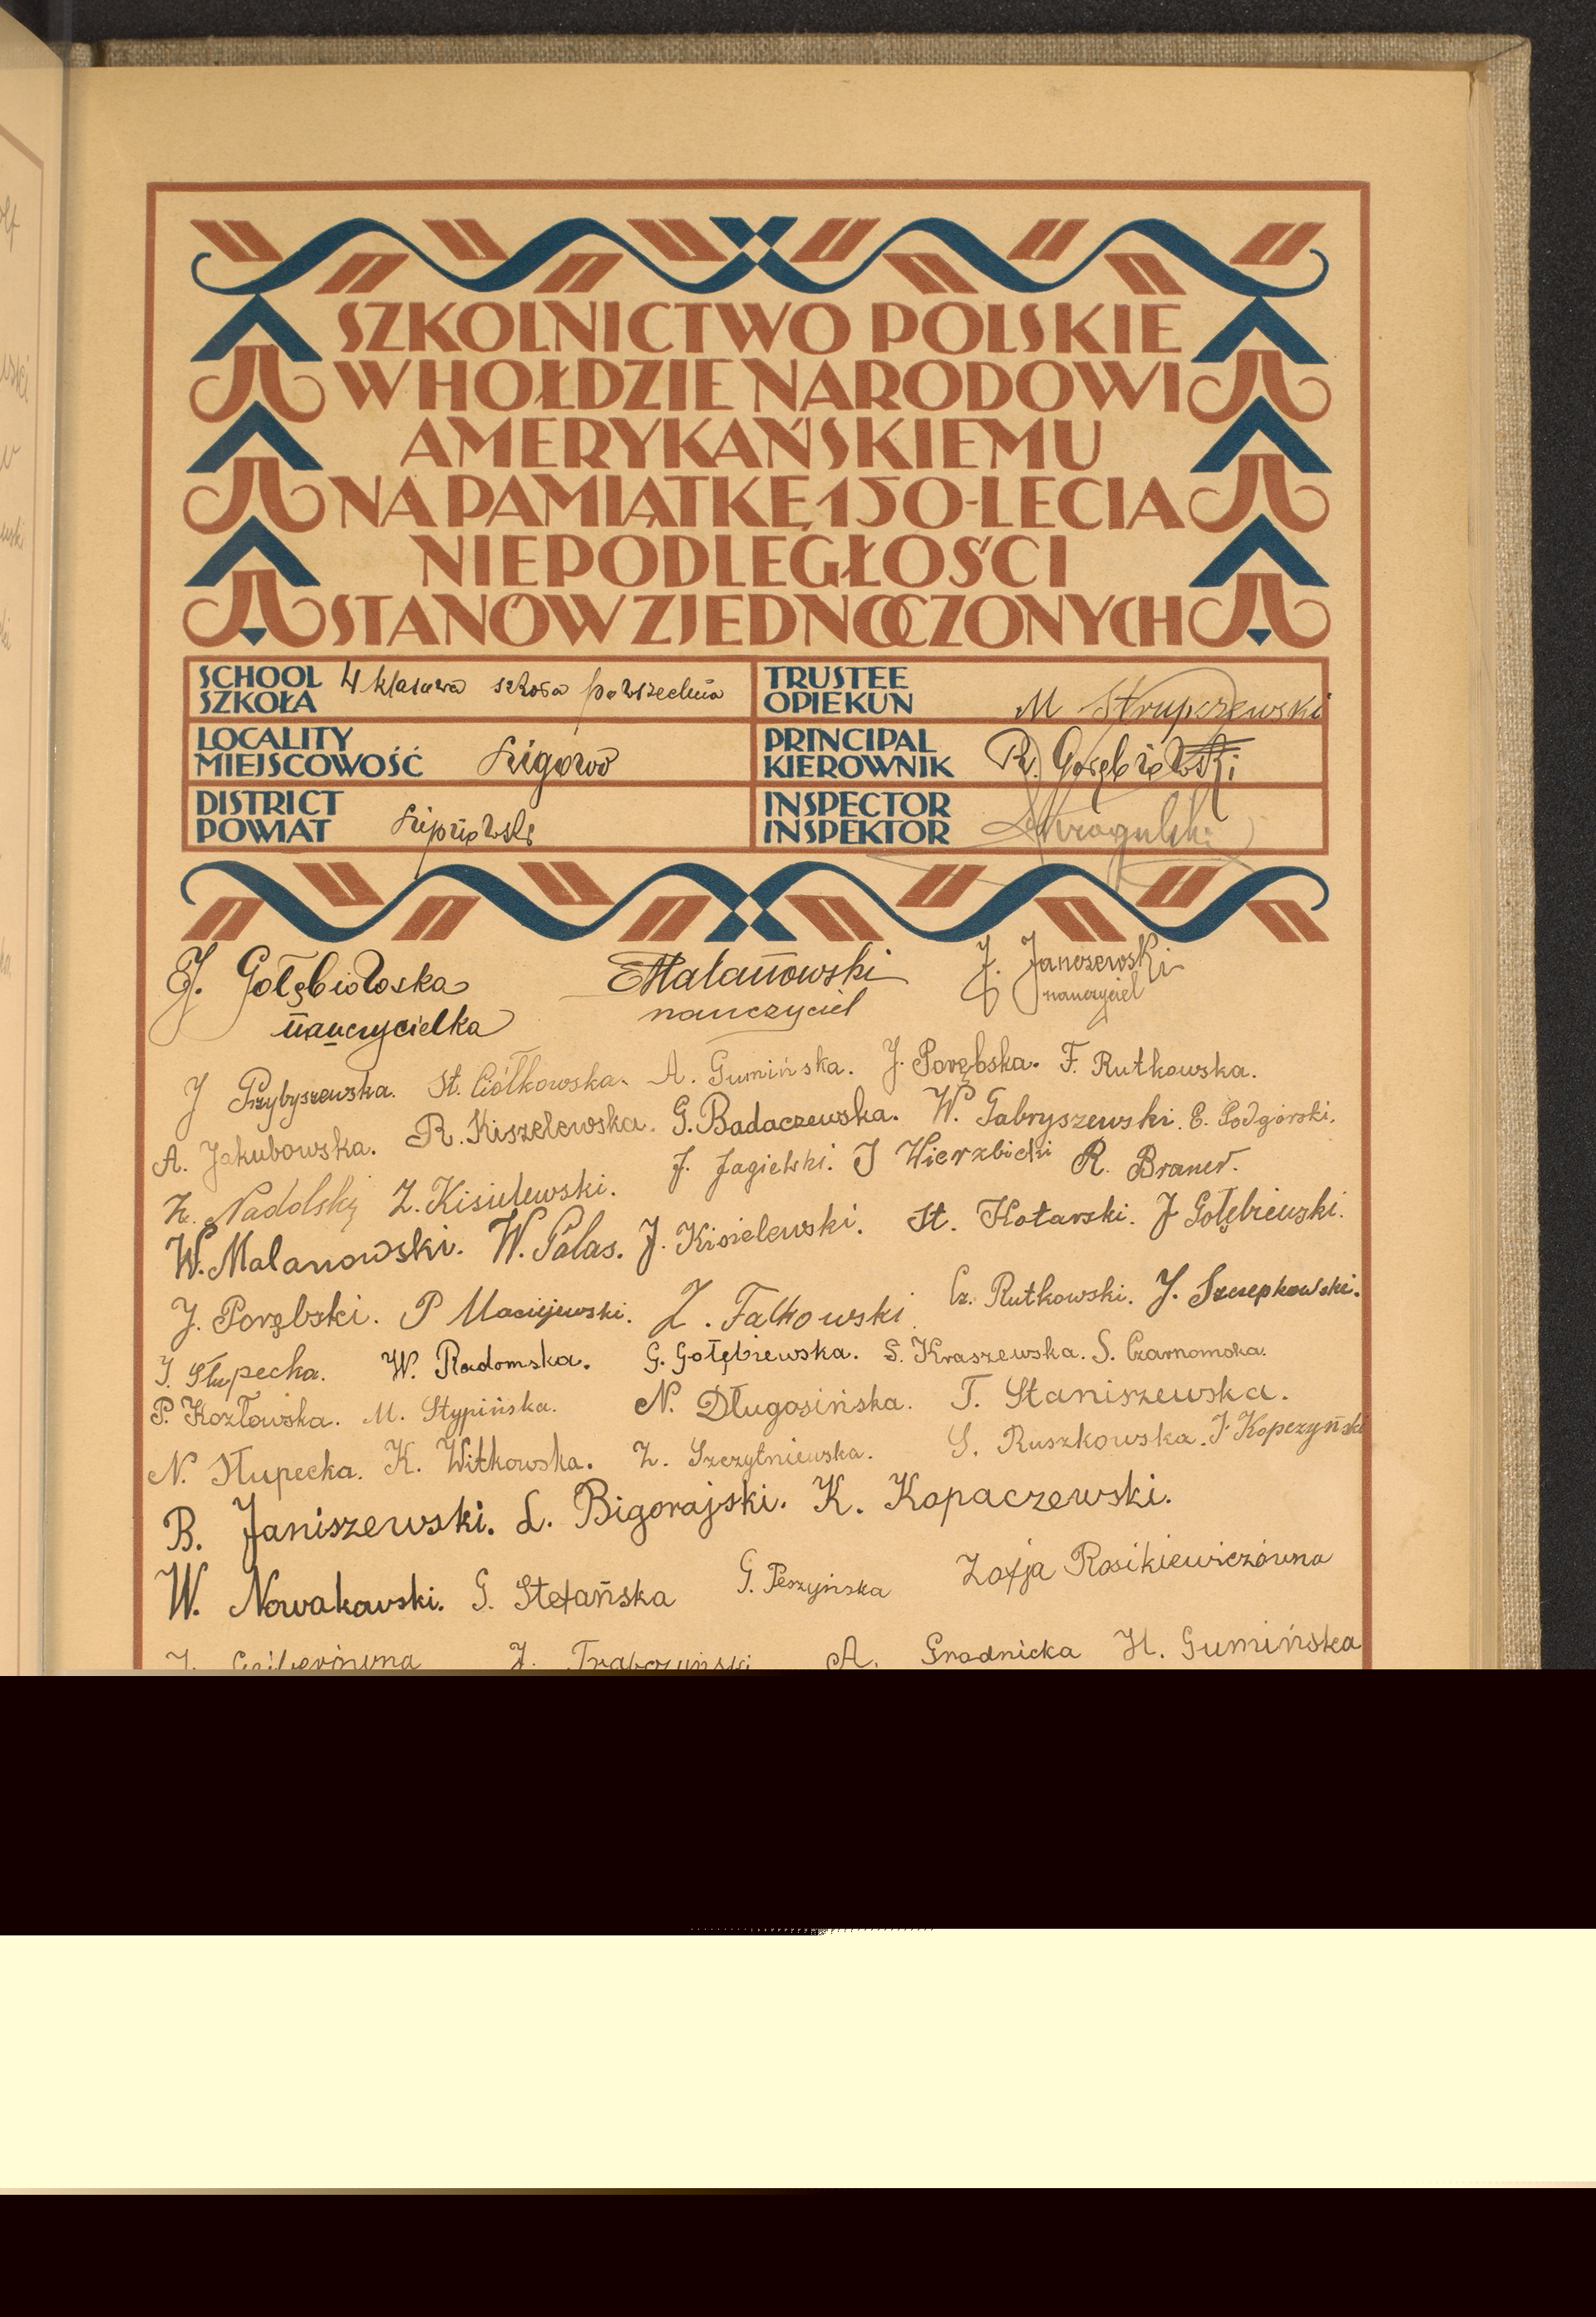 SZKOLNICTWO POLSKIE
W HOŁDZIE NARODOWI
AMERYKAŃSKIEMU
NA PAMIĄTKĘ 150-LECIA
NIEPODLEGŁOŚCI
STANÓW ZJEDNOCZONYCH
SCHOOL
SZKOŁA 4 klasowa szkoła powszechna
TRUSTEE
OPIEKUN M Strupczewski
LOCALITY
MIEJSCOWOŚĆ Ligowo
PRINCIPAL
KIEROWNIK R. Gołębiowski
DISTRICT
POWIAT Lipnowski
INSPECTOR
INSPEKTOR
J. Gołębiowska Malanowski J. Janczewski
nauczycielka nauczyciel nauczyciel
J Przybyszewska. St. Ciółkowska. A. Gumińska. J. Porębska. F. Rutkowska.
A. Jakubowska. R. Kiszelewska. G. Badaczewska. W. Gabryszewski. E. Podgórski.
Z. Nadolski Z. Kisielewski. J. Jagielski. J Wierzbicki R.
W. Malanowski. W. Palas. J. Kisielewski. St. Kotarski. J Gołębiewski.
J. Porębski. P Maciejewski. Z. Falkowski. Cz. Rutkowski. J. Szczepkowski.
J. Słupecka. W. Radomska. G. Gołębiewska. S. Kraszewska. S. Czarnomska.
P. Kozłowska. M. Stypińska. N. Długosińska. T. Staniszewska.
N. Słupecka. K. Witkowska. Z. Szczytniewska. G. Ruszkowska. J. Kopczyński
B. Janiszewski. L. Bigorajski. K. Kopaczewski.
W. Nowakowski. G. Stefańska G. Peszyńska Zofja Rosikiewiczówna
J. Trabczyński A. Grodnicka H. Gumińska